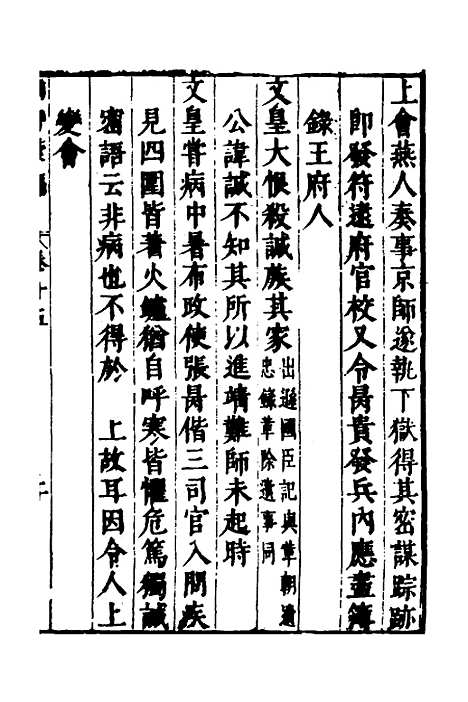 上會燕人奏事京師遂執下獄得其密謀踪跡
即發符逮府官校又令昺貴發兵內應盡簿
錄王府人
文皇大恨殺誠族其家出遜國臣記與革朝遺
忠錄革除遺事同
公諱誠不知其所以進靖難師未起時
文皇嘗病中暑布政使張昺偕三司官入問疾
見四圍皆著火爐猶自呼寒皆懼危篤獨誠
密語云非病也不得於　上故耳因令人上
變會
卷十五